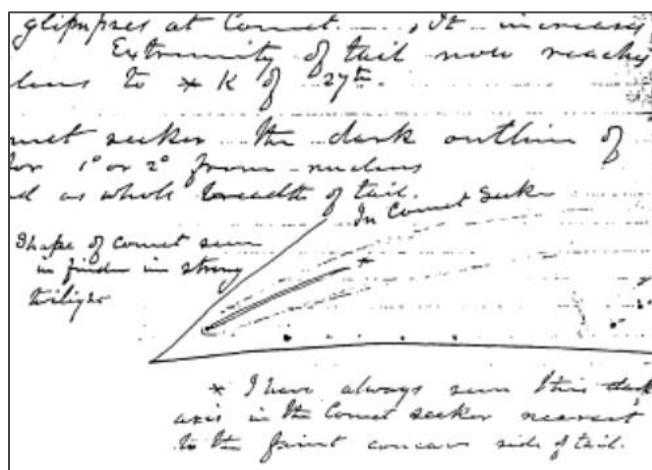 glimpses at Comet. It increases
Extremity of tail now reaches
* K of 27th.
seeker the dark outline of
for 1° or 2° from nucleus
d as whole breadth of tail.
In Comet Seeker
Shape of Comet seen
in finder in strong
twilight
*
* I have always seen this dark
axis in the Comet seeker nearest
to the faint concave side of tail.